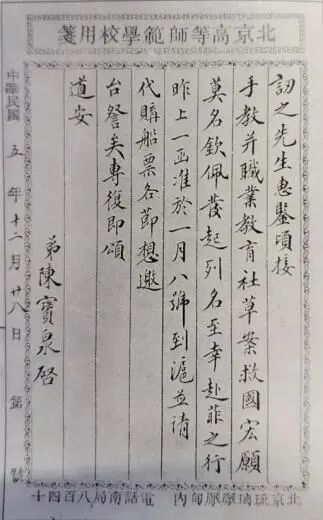 北京高等師範學校用箋
訒之先生惠鑒頃接
手教并職業教育社草案救國宏願
莫名欽佩發起列名至幸赴菲之行
昨上一函准於一月八號到滬並請
代購船票各節想邀
台詧矣專復即頌
道安
弟陳寶泉啓
中華民國 五 年 十二 月 廿八 日 第 號
北京琉璃厰厰甸內 電話南局八百四十